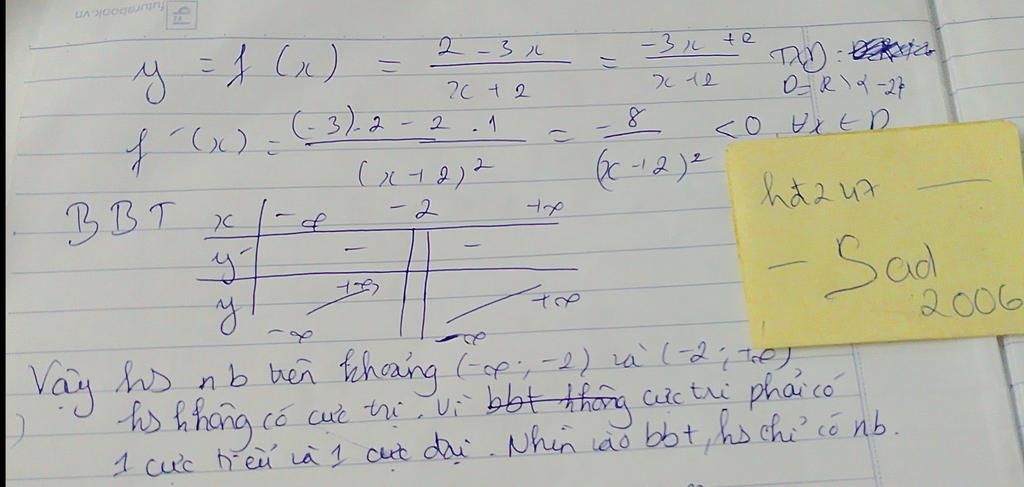 futurebook.vn
y = f (x) = 2 - 3x / x + 2 = -3x + 2 / x + 2 TXĐ:
D = R \ {-2}
f '(x) = (-3).2 - 2.1 / (x + 2)² = -8 / (x + 2)² < 0, ∀x ∈ D
hđ247
- Sad
2006
BBT x -∞ -2 +∞
y' - -
y +∞ +∞
-∞ -∞
Vậy hs nb trên khoảng (-∞; -2) và (-2; +∞)
) hs không có cực trị. Vì bbt không cực trị phải có
1 cực tiểu và 1 cực đại. Nhìn vào bbt, hs chỉ có nb.